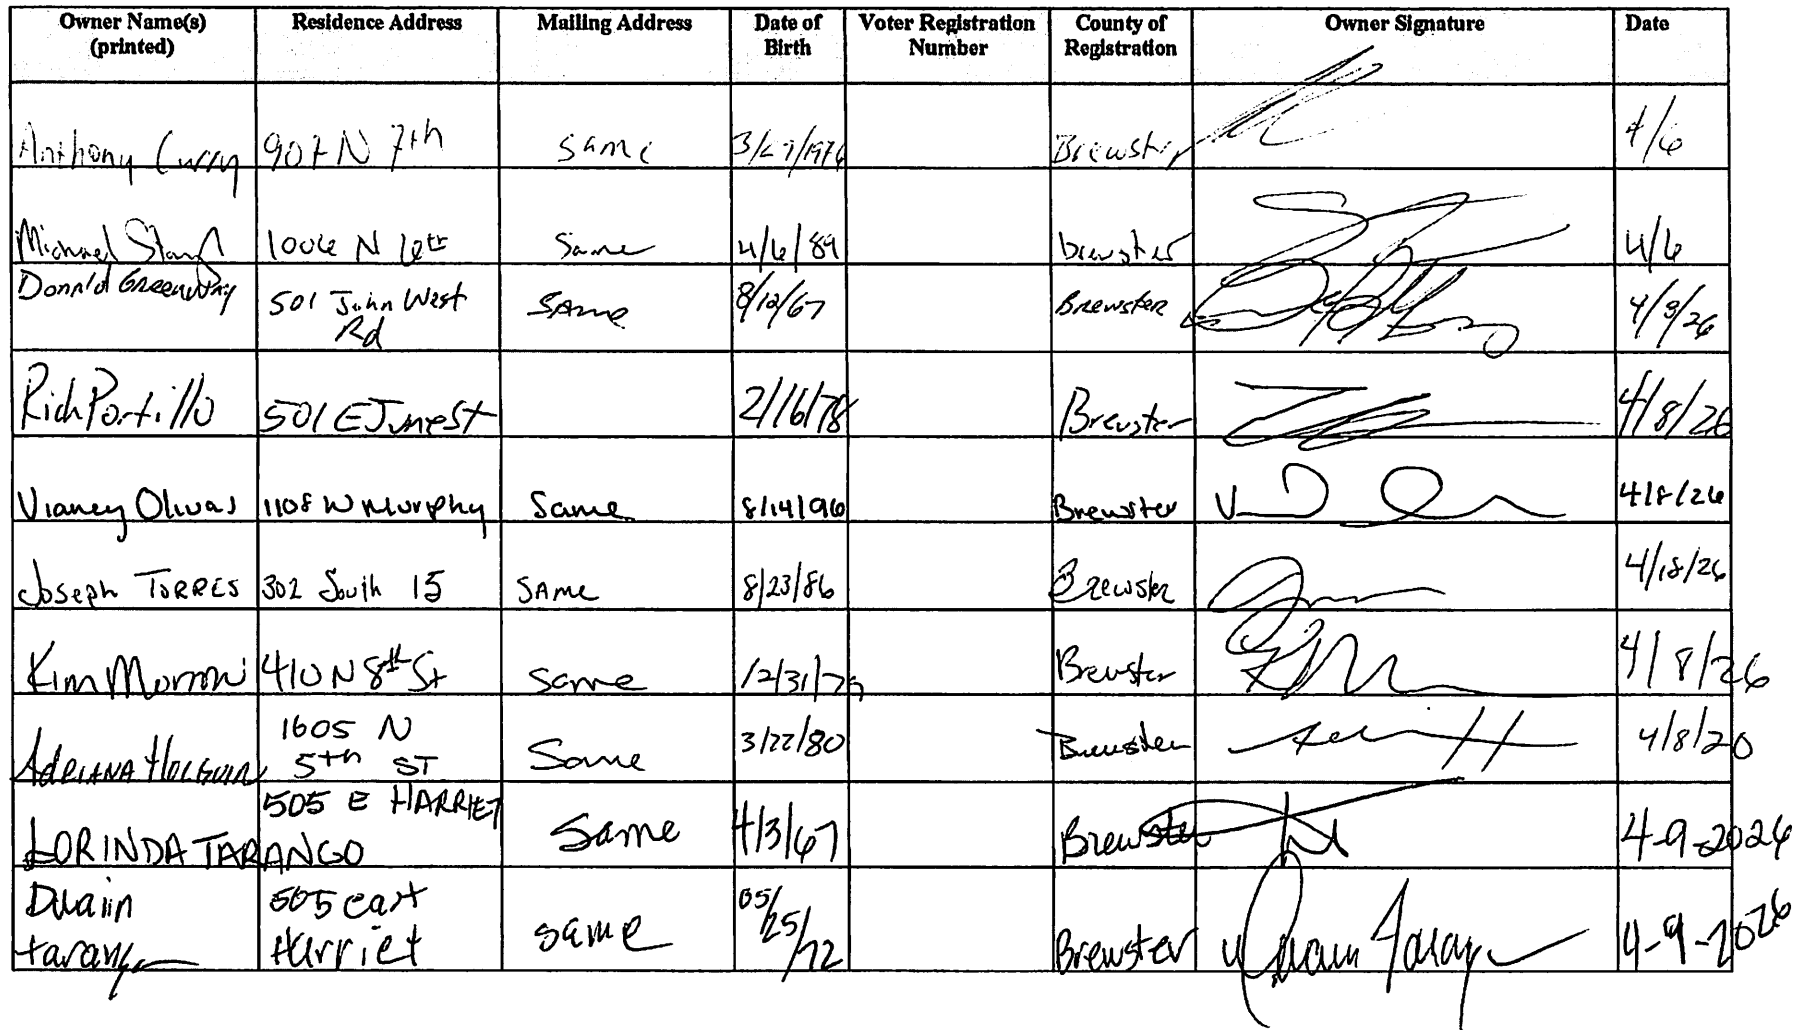 Owner Name(s) (printed) Residence Address Mailing Address Date of Birth Voter Registration Number County of Registration Owner Signature Date
Anthony Curry 907 N 7th same Brewster 4/6
Michael 1006 N 6th Same 4/6/89 brewster 4/6
Donald Greenway 501 John West Rd SAme 8/12/67 Brewster 4/9/26
Rich Portillo 501 E June st 2/16/78 Brewster 4/8/26
Vianey Olivas 1108 W Murphy Same 8/14/96 Brewster 4/8/26
Joseph TORRES 302 South 15 SAME 8/23/86 Brewster 4/18/26
Kim 410 N 8th St Same 12/31/79 Brewster 4/8/26
ADRIANA HOLGUIN 1605 N 5th ST Same 3/22/80 Brewster 4/8/20
LORINDA TARANGO 505 E HARRIET Same 4/3/67 Brewster 4-9-2026
Dwain tarango 505 east Harriet same 05/25/72 Brewster Dwain Tarango 4-9-2026